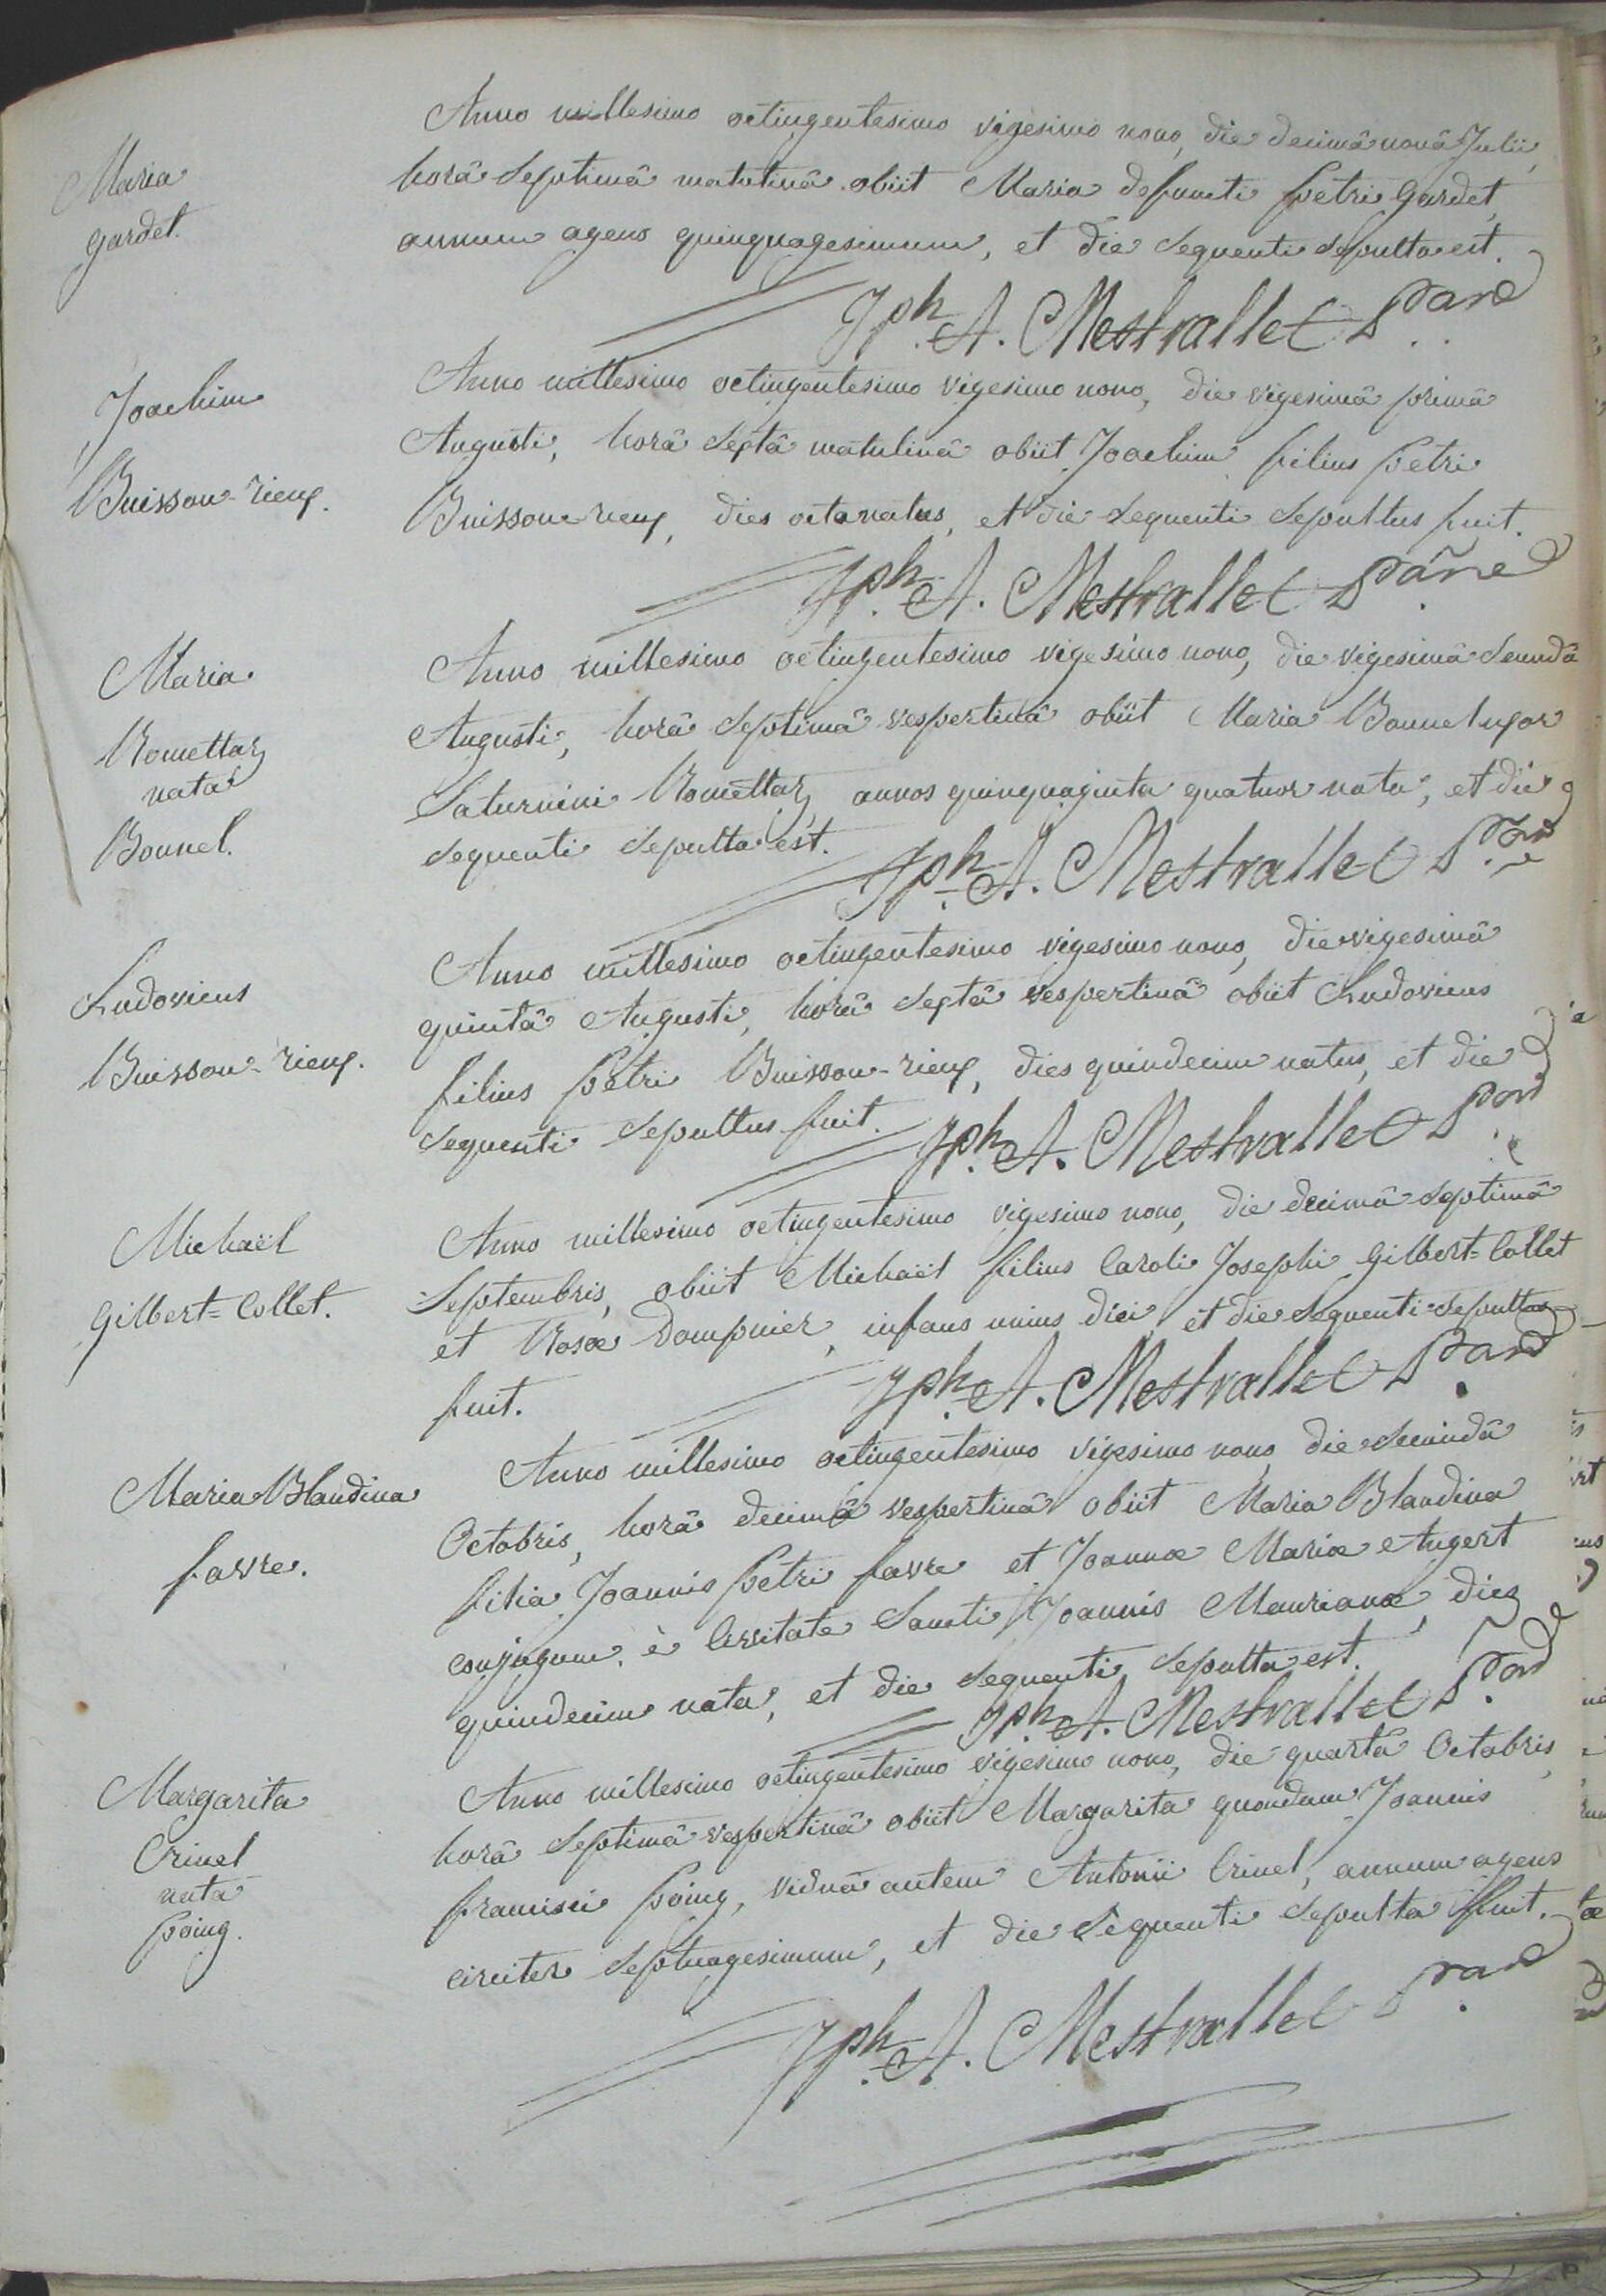 Maria
gardet.
Anno millesimo octingentesimo vigesimo nono, die decimâ nonâ Julii,
horâ septimâ matutinâ obiit Maria defuncti petri gardet,
annum agens quinquagesimum, et die sequenti sepulta est.
Jph. A. Mestrallet
Joachim
Buisson-rieux.
Anno millesimo octingentesimo vigesimo nono, die vigesimâ primâ
Augusti, horâ sextâ matutinâ obiit Joachim filius petri
Buisson-rieux, dies octo natus, et die sequenti sepultus fuit.
Jph. A. Mestrallet
Maria
Romettaz
nata
Bonnel.
Anno millesimo octingentesimo vigesimo nono, die vigesimâ secundâ
Augusti, horâ septimâ vespertinâ obiit Maria Bonnel uxor
Saturnini Romettaz, annos quinquaginta quatuor nata, et die
sequenti sepulta est.
Jph. A. Mestrallet
Ludovicus
Buisson-rieux.
Anno millesimo octingentesimo vigesimo nono, die vigesimâ
quintâ Augusti, horâ sextâ vespertinâ obiit Ludovicus
filius petri Buisson-rieux, dies quindecim natus, et die
sequenti sepultus fuit.
Jph. A. Mestrallet
Michaël
Gilbert=Collet.
Anno millesimo octingentesimo vigesimo nono, die decimâ septimâ
Septembris, obiit Michaël filius Caroli Josephi Gilbert=Collet
et Rosæ Dompnier, infans unius diei, et die sequenti sepultus
fuit.
Jph. A. Mestrallet
Maria Blandina
favre.
Anno millesimo octingentesimo vigesimo nono, die secundâ
Octobris, horâ decimâ vespertinâ obiit Maria Blandina
filia Joannis petri favre et Joannæ Mariæ Augert
conjugum, è Civitate Sancti Joannis Maurianæ, dies
quindecim nata, et die sequenti sepulta est.
Jph. A. Mestrallet
Margarita
Crinel
nata
poing.
Anno millesimo octingentesimo vigesimo nono, die quartâ Octobris,
horâ septimâ vespertinâ obiit Margarita quondam Joannis
francisci poing, vidua autem Antonii Crinel, annum agens
circiter septuagesimum, et die sequenti sepulta fuit.
Jph. A. Mestrallet